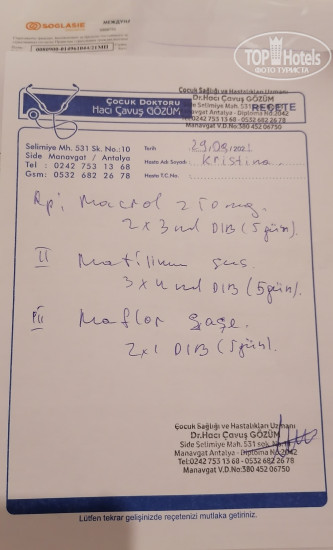 SOGLASIE
МЕЖДУНА
TOP Hotels
ФОТО ТУРИСТА
ÇOCUK DOKTORU
Hacı Çavuş GÖZÜM
Çocuk Sağlığı ve Hastalıkları Uzmanı
Dr.Hacı Çavuş GÖZÜM
Side Selimiye Mah. 531
Manavgat Antalya - Diploma No:2042
Tel:0242 753 13 68 - 0532 682 26 78
Manavgat V.D.No:380 452 06750
REÇETE
Selimiye Mh. 531 Sk. No.:10
Side Manavgat / Antalya
Tel : 0242 753 13 68
Gsm: 0532 682 26 78
Tarih 29/09/2021
Hasta Adı Soyadı: Kristina
Hasta T.C No.:
Rpi Macrol 250 mg.
2x3 ml DIB (5 gün).
II Motilium sus.
3x4 ml DIB (5 gün).
Maflor şaşe.
2x1 DIB (5 gün).
Çocuk Sağlığı ve Hastalıkları Uzmanı
Dr.Hacı Çavuş GÖZÜM
Side Selimiye Mah. 531 sok. No:10
Manavgat Antalya - Diploma No:2042
Tel:0242 753 13 68 - 0532 682 26 78
Manavgat V.D.No:380 452 06750
Lütfen tekrar gelişinizde reçetenizi mutlaka getiriniz.